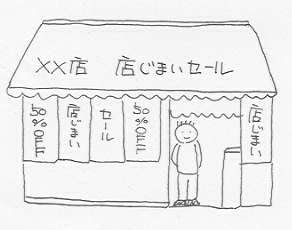 ××店　店じまいセール
50%OFF
店じまい
セール
50%OFF
店じまい